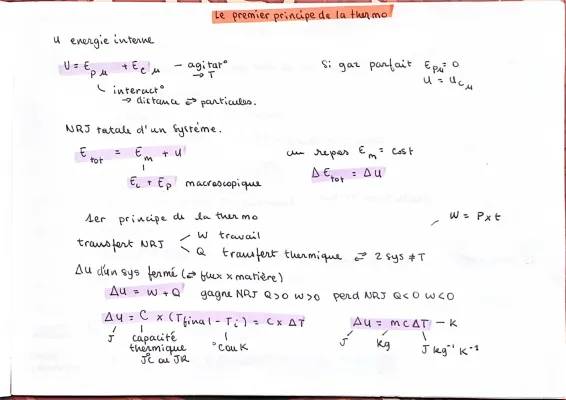 Le premier principe de la thermo
U energie interne
U = E_pµ + E_cµ — agitat° → T
interact°
→ distance ⇄ particules.
Si gaz parfait E_pµ = 0
U = U_cµ
NRJ totale d'un système.
E_tot = E_m + U
E_c + E_p macroscopique
au repos E_m = cost
ΔE_tot = ΔU
1er principe de la thermo
W = P x t
transfert NRJ
W travail
Q transfert thermique ⇄ 2 sys ≠ T
ΔU d'un sys fermé (⇄ flux x matière)
ΔU = W + Q gagne NRJ Q>0 W>0 perd NRJ Q<0 W<0
ΔU = C x (Tfinal - Ti) = C x ΔT
J capacité thermique J°C ou JK
°C ou K
ΔU = mcΔT — K
J kg J kg⁻¹ K⁻¹